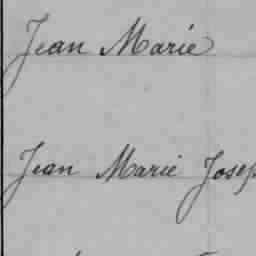 Jean Marie
Jean Marie Josep